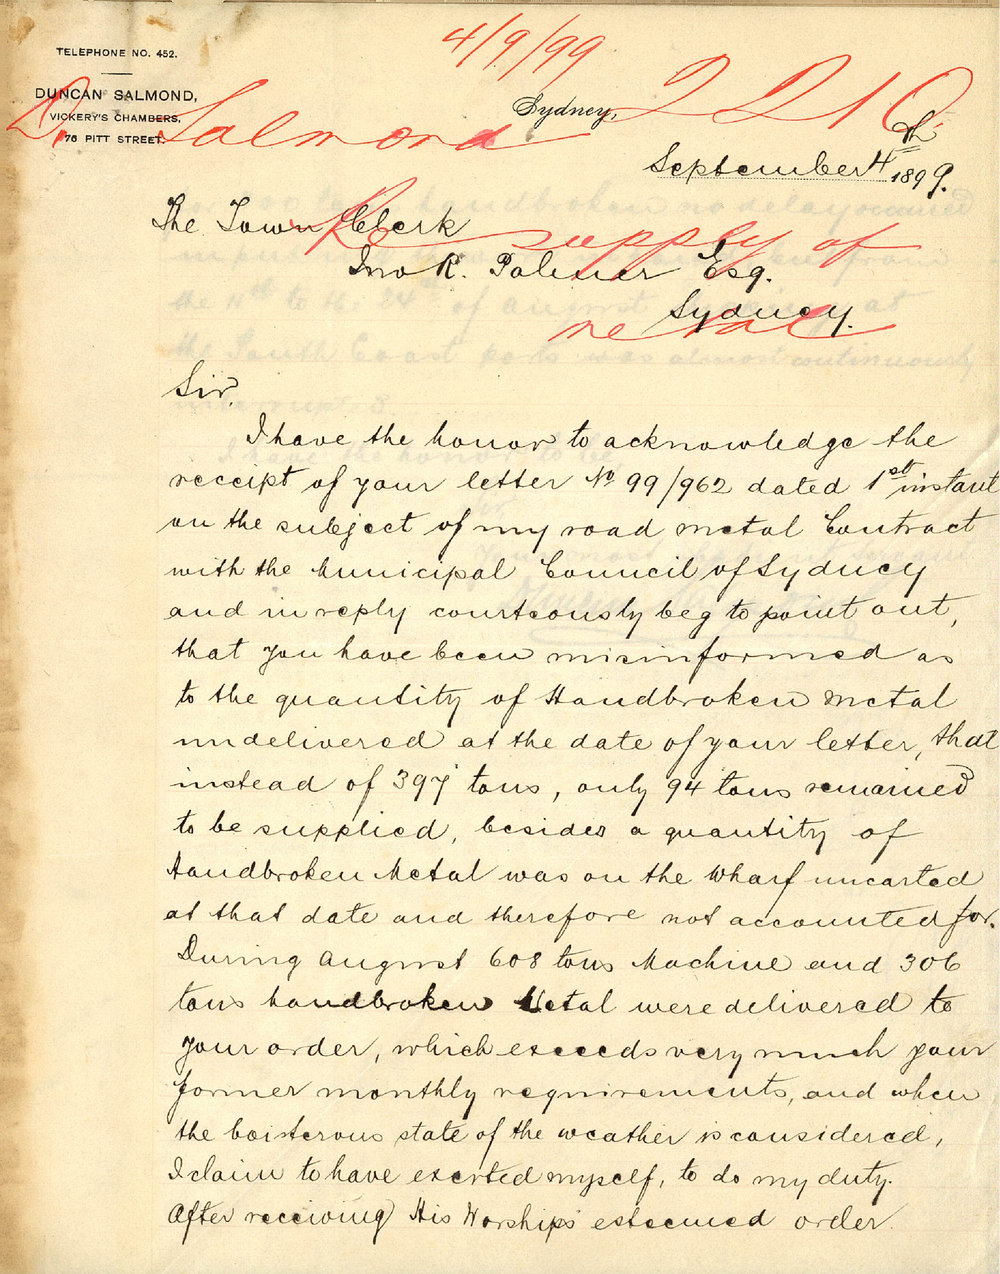 4/9/99
TELEPHONE NO. 452.
DUNCAN SALMOND,
VICKERY'S CHAMBERS,
76 PITT STREET.
D. Salmond
2210
Sydney,
September 4th 1899.
Re supply of
metal
The Town Clerk
Jno R. Palmer Esq.
Sydney.
Sir.
I have the honor to acknowledge the
receipt of your letter No 99/962 dated 1st instant
on the subject of my road metal Contract
with the Municipal Council of Sydney
and in reply courteously beg to point out,
that you have been misinformed as
to the quantity of Handbroken Metal
undelivered at the date of your letter, that
instead of 397 tons, only 94 tons remained
to be supplied, besides a quantity of
Handbroken Metal was on the Wharf uncarted
at that date and therefore not accounted for.
During August 608 tons Machine and 306
tons handbroken Metal were delivered to
your order, which exceeds very much your
former monthly requirements, and when
the boisterous state of the weather is considered,
I claim to have exerted myself, to do my duty.
After receiving His Worships esteemed order